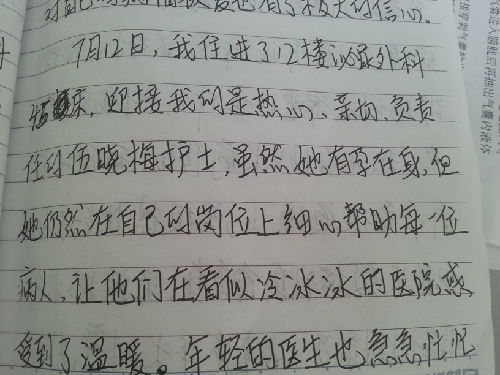 也有了极大的信心。
7月12日，我住进了12楼泌尿外科
45床，迎接我的是热心、亲切、负责
任的伍晓梅护士，虽然她有孕在身，但
她仍然在自己的岗位上细心帮助每一位
病人，让他们在看似冷冰冰的医院感
受到了温暖。年轻的医生也急急忙忙